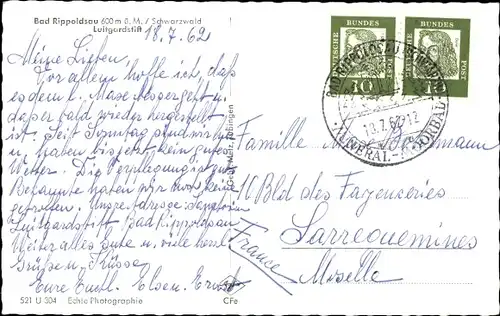 Bad Rippoldsau 600 m ü. M. / Schwarzwald
Luitgardstift
18.7.62
Meine Lieben.
Vor allem hoffe ich, daß
es dem l. Maxe besser geht u.
daher bald wieder hergestellt
ist. Seit Sonntag sind wir hier
u. haben bis jetzt kein gutes
Wetter. Die Verpflegung ist gut
Bekannte haben wir noch keine
getroffen. Unsre Adresse: Sanatorium
Luitgardstift, Bad Rippoldsau
Weiter alles Gute u. viele herzl.
Grüße u. Küsse
Eure Euch l. Elsen. Ernst
521 U 304 Echte Photographie
CFe
Gebr. Metz, Tübingen
DEUTSCHE BUNDES POST
10
DEUTSCHE BUNDES POST
BAD RIPPOLDSAU
18.7.62-12
MINERAL- MOORBAD
Familie M.
10 Bld des Fayenceries
Sarreguemines
Moselle
France